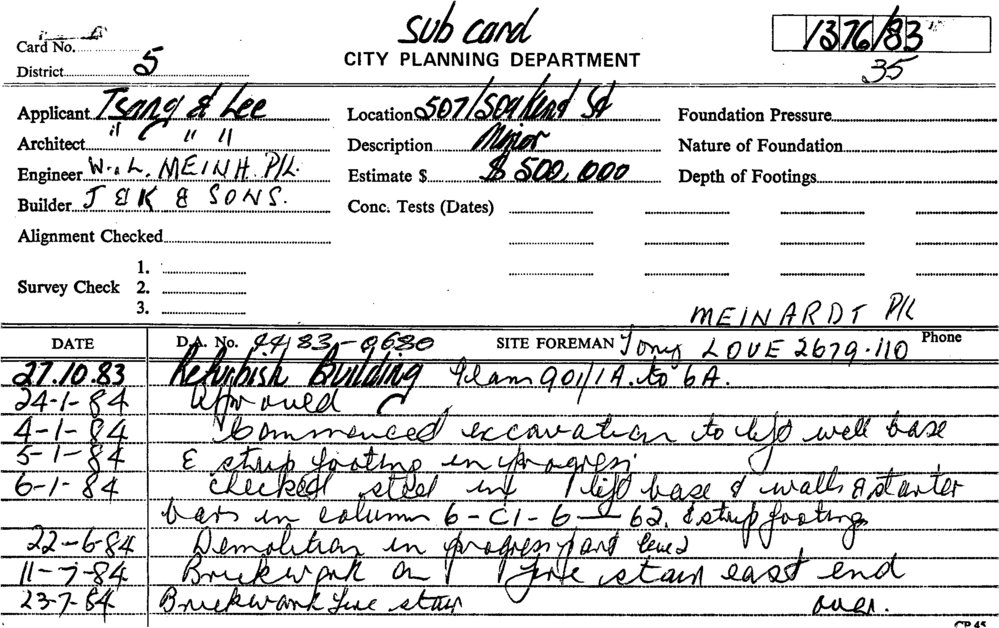 Sub card
Card No.
1376/83
CITY PLANNING DEPARTMENT
District 5
35
Applicant Tsang & Lee
Location 507/509 Kent St
Foundation Pressure
Architect " " "
Description Major
Nature of Foundation
Engineer W. L. MEINH. P/L.
Estimate $ $ 500,000
Depth of Footings
Builder J & K & SONS.
Conc. Tests (Dates)
Alignment Checked
1.
Survey Check 2.
3.
MEINARDT P/L
DATE D.A. No. 44/83-0680 SITE FOREMAN Tony LOVE 2679.110 Phone
27.10.83 Refurbish Building Plans 901/1A. to 6A.
24-1-84 Approved
4-1-84 Commenced excavation to lift well base
5-1-84 & strip footing in progress
6-1-84 checked steel in lift base & walls & starter
bars in column 6-C1-6 — 62. & strip footing
22-6-84 Demolition in progress part level
11-7-84 Brickwork on fire stair east end
23-7-84 Brickwork fire stair over.
CP 45